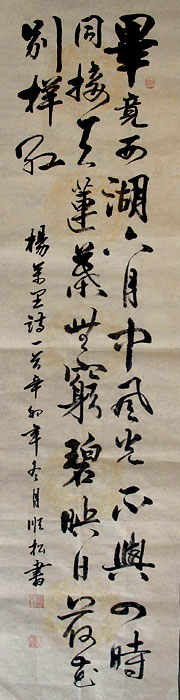 畢竟西湖六月中風光不與四時
同接天蓮葉無窮碧映日荷花
別樣紅
楊萬里詩一首辛卯年冬月順松書